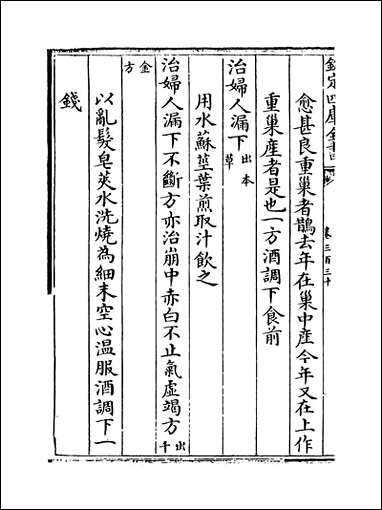 欽定四庫全書 卷三百三十
愈甚良重巢者鵲去年在巢中産今年又在上作
重巢産者是也一方酒調下食前
治婦人漏下出本草
用水蘇莖葉煎取汁飲之
治婦人漏下不斷方亦治崩中赤白不止氣虛竭方出千
金方
以亂髮皂莢水洗燒為細末空心温服酒調下一
錢